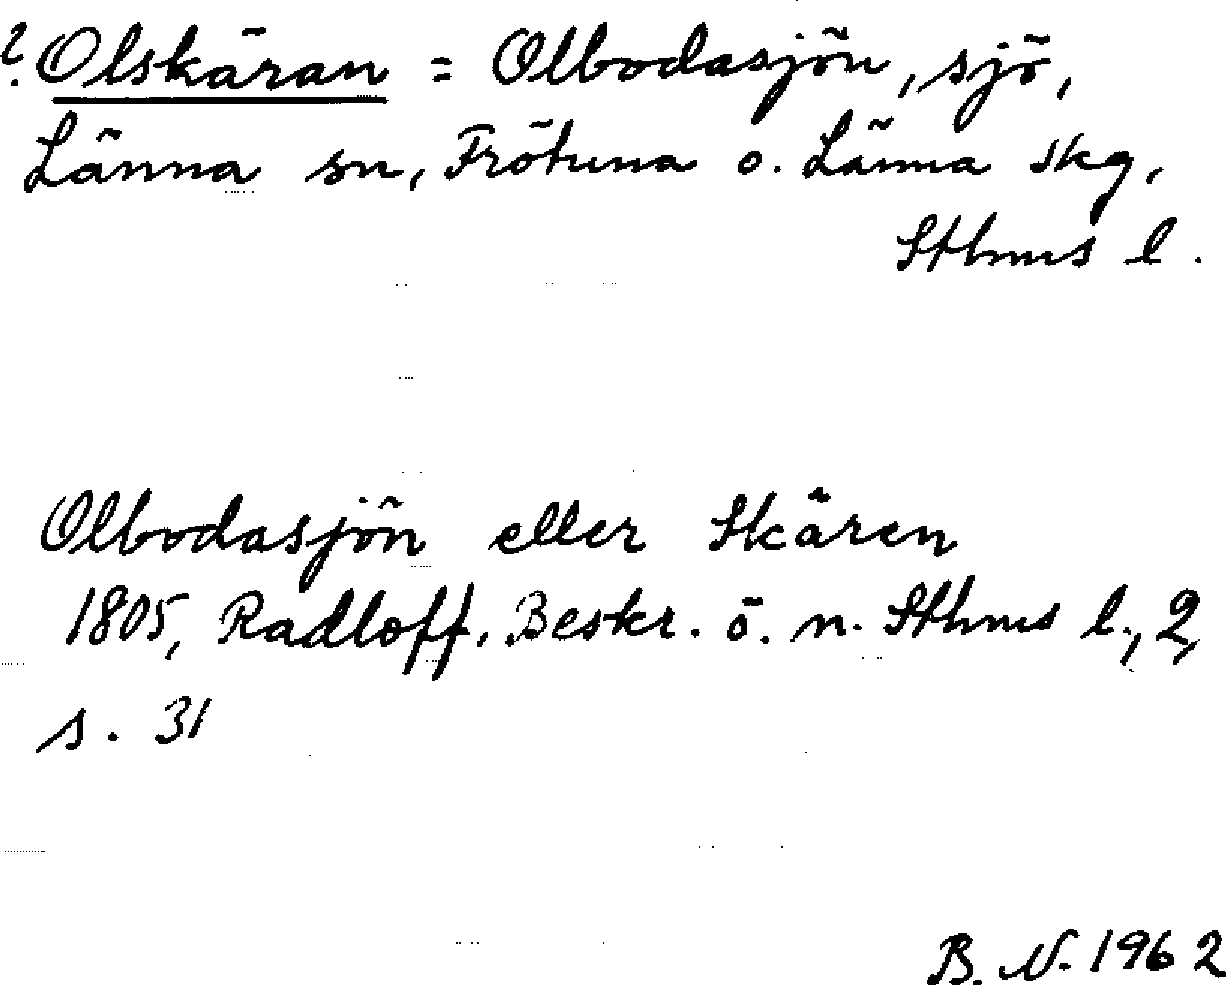 ? Olskäran = Olbodasjön, sjö,
Länna sn, Frötuna o. Länna skg,
Sthms l.
Olbodasjön eller Skären
1805, Radloff, Beskr. ö. n. Sthms l., 2,
s. 31
B. N. 1962